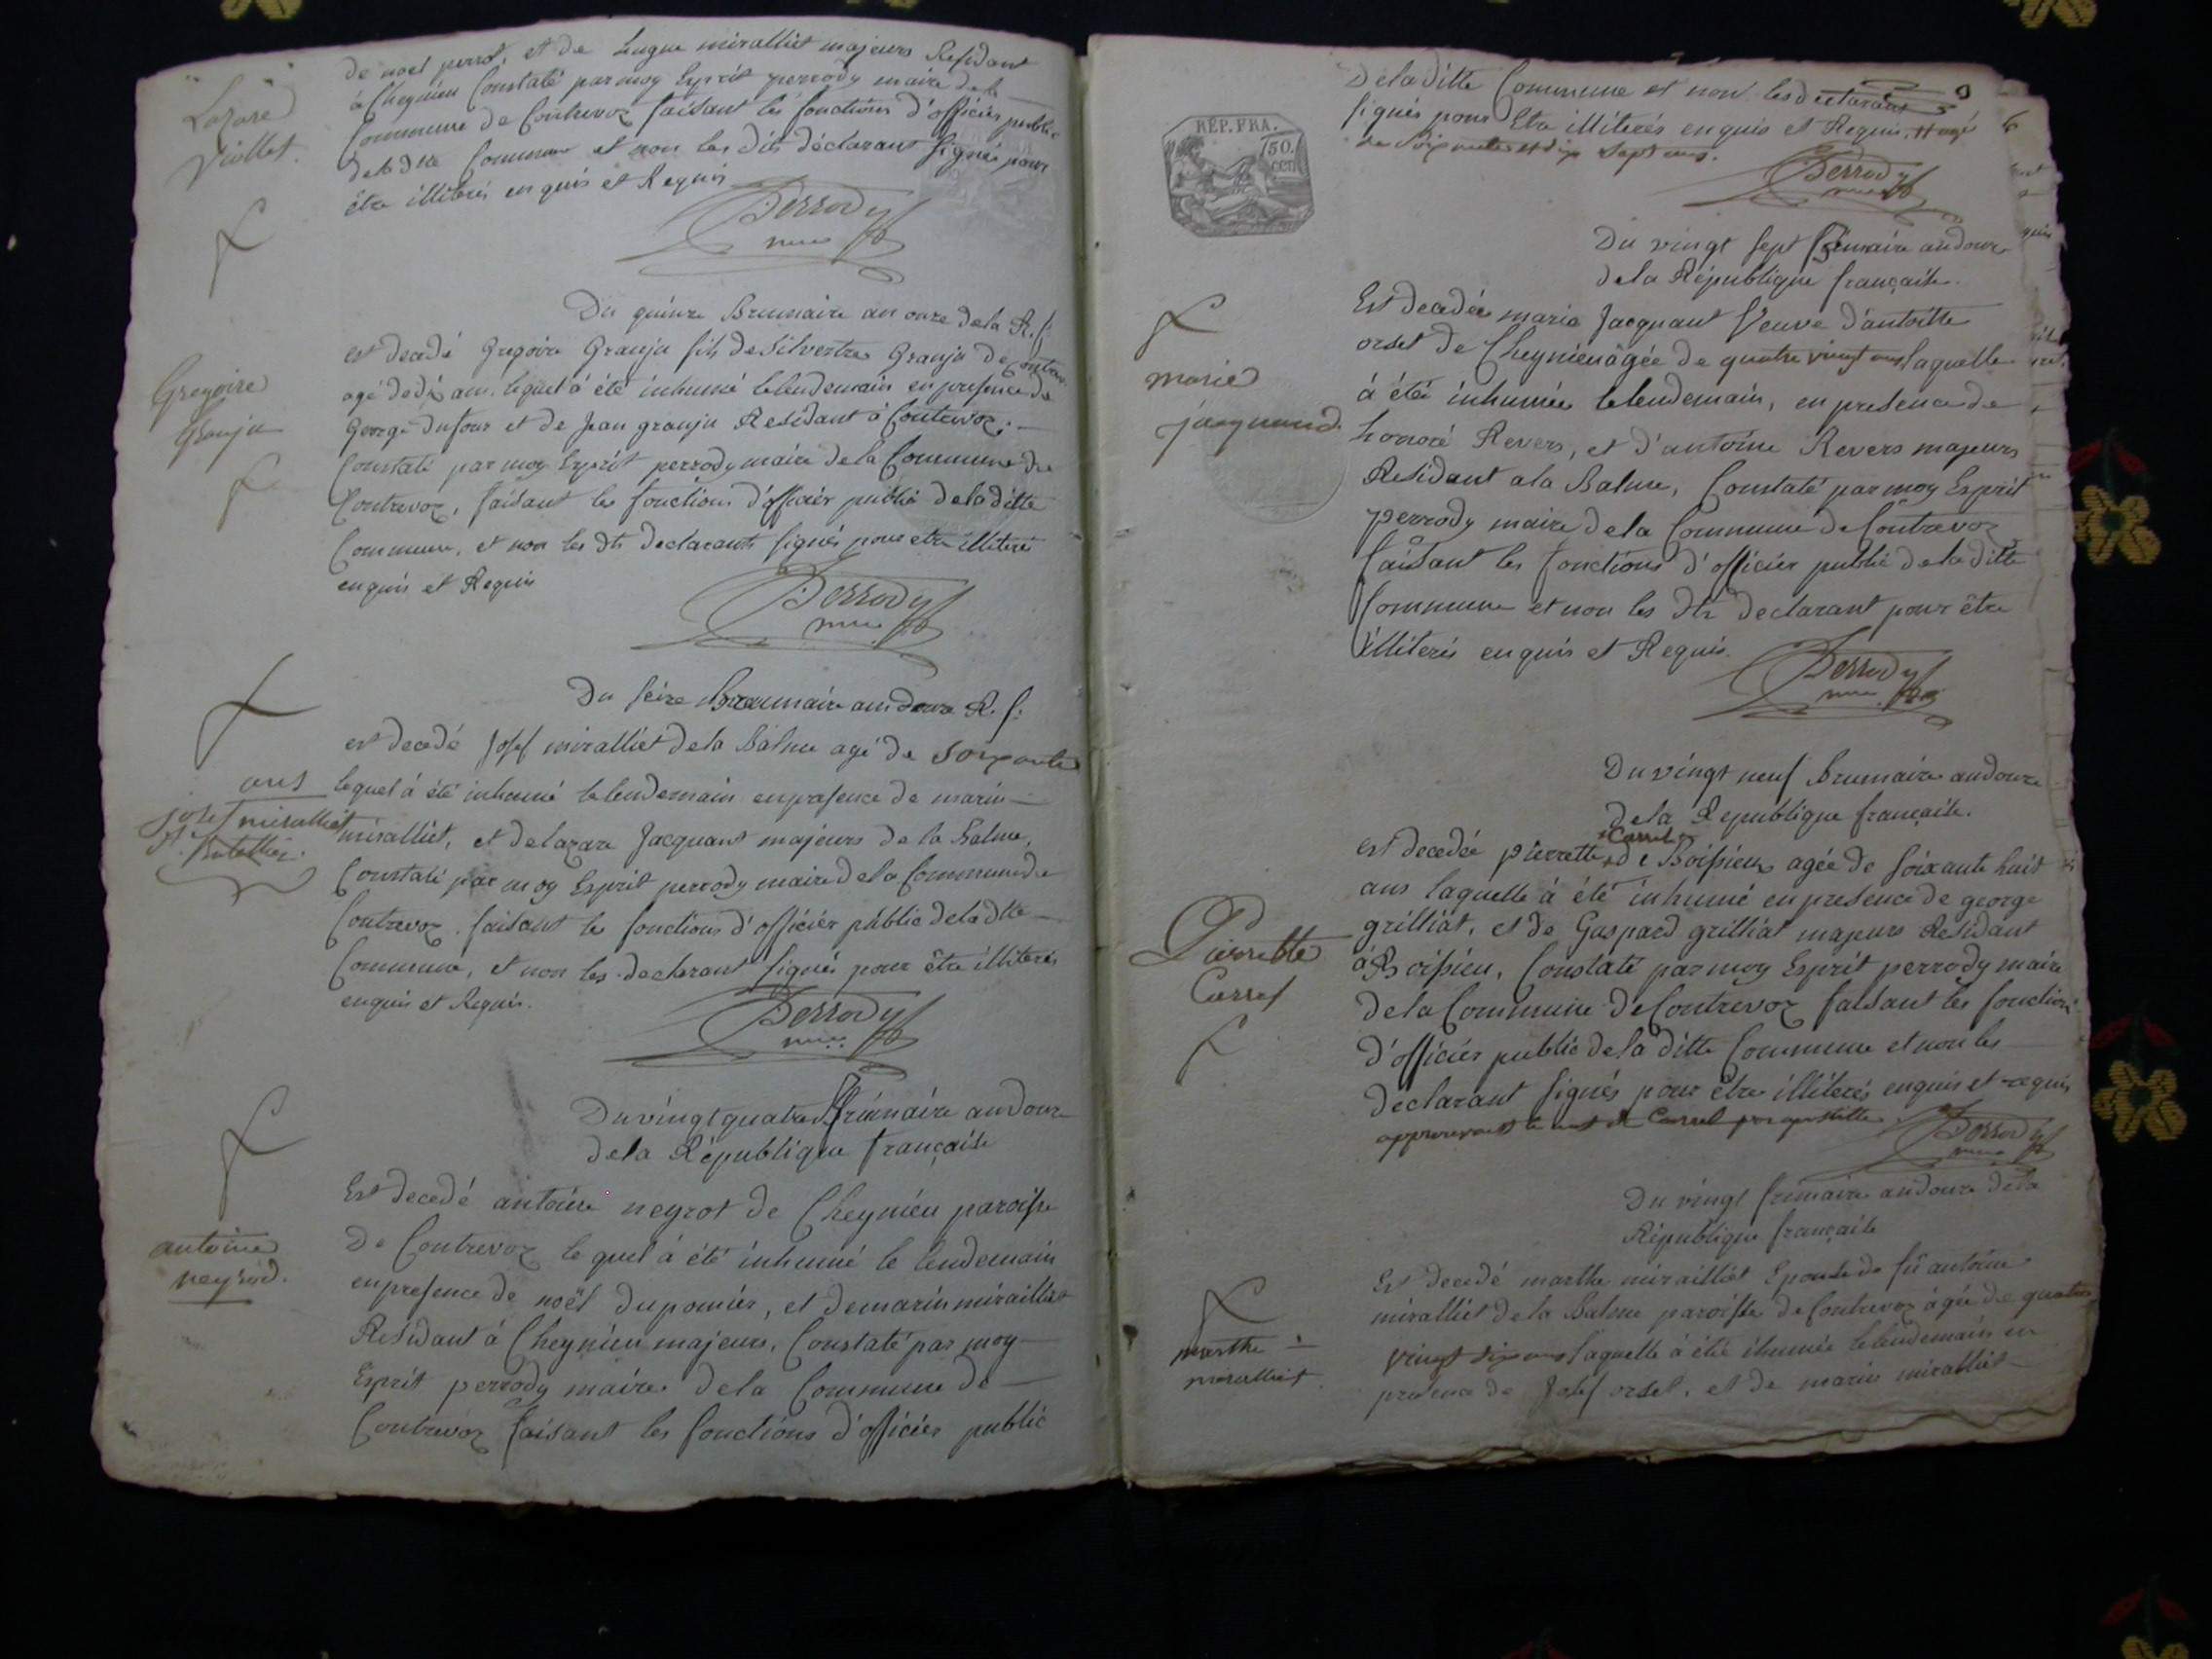 de noel perrot, et de hugue miralliet majeurs Residant
à Cheynieu Constaté par moy Esprit perrody maire de la
Commune de Contrevoz faisant les fonctions d'officier public
de la dite Commune et non les dits déclarant signés pour
être illiterés enquis et Requis
Perrody
maire
Lazare
Viollet.
Du quinze Brumaire an onze de la R. f.
est decedé Gregoire Granju fils de Silvestre Granju de Contrevoz
agé de dix ans. lequel à été inhumé le lendemain en presence de
George dufour et de Jean granju Residant à Contrevoz;
Constaté par moy Esprit perrody maire de la Commune de
Contrevoz, faisant les fonctions d'officier public de la ditte
Commune, et non les dts declarants signés pour etre illiteré
enquis et Requis
Perrody
maire
Gregoire
Granju
Du seize Brumaire an douze R. f.
est decedé Josef miralliet de la Balme agé de soixante
ans lequel à été inhumé le lendemain en presence de marin
miralliet, et de lazare Jacquant majeurs de la Balme,
Constaté par moy Esprit perrody maire de la Commune de
Contrevoz faisant les fonctions d'officier public de la dtte
Commune, et non les declarant signés pour être illiterés
enquis et Requis.
Perrody
maire
josef miralliet
Du vingt quatre frimaire an douze
de la République française
Est decedé antoine neyrot de Cheynieu paroisse
De Contrevoz le quel à été inhumé le lendemain
en presence de noël duponier, et de marin mirailliet
Residant à Cheynieu majeurs, Constaté par moy
Esprit perrody maire de la Commune de
Contrevoz faisant les fonctions d'officier public
antoine
neyrod.
De la ditte Commune et non les declarant
signés pour Etre illiterés enquis et Requis. # agé
de soixante et dix sept ans.
Perrody
maire
6
REP. FRA.
50.
cen
Du vingt sept frimaire an douze
de la République française.
Est decedée marie Jacquant Veuve d'antoitte
orset de Cheynieu âgée de quatre vingt ans laquelle
à été inhumée le lendemain, en presence de
honoré Revers, et d'antoine Revers majeurs
Residant a la Balme, Constaté par moy Esprit
perrody maire de la Commune de Contrevoz
faisant les fonctions d'officier public de la ditte
Commune et non les dts declarant pour être
illiterés enquis et Requis.
Perrody
maire
marie
jacquand.
Du vingt neuf Brumaire an douze
de la Republique française.
Carrel
est decedée pierrette de Boissieu agée de soixante huit
ans laquelle à été inhumé en presence de george
grilliat, et de Gaspard grilliat majeurs Residant
à Boissieu, Constaté par moy Esprit perrody maire
de la Commune de Contrevoz faisant les fonction
d'officier public de la ditte Commune et non les
declarant signés pour être illiterés enquis et requis
approuvant le mot de Carrel par apostille
Perrody
maire
Pierrette
Carrel
Du vingt frimaire an douze de la
République française
Est decedé marthe mirailliet Epouse de fû antoine
miralliet de la Balme paroisse de Contrevoz âgée de quatre
vingt dix ans laquelle à été ihumée le lendemain en
presence de Josef orset, et de marin miralliet
marthe
miralliet.